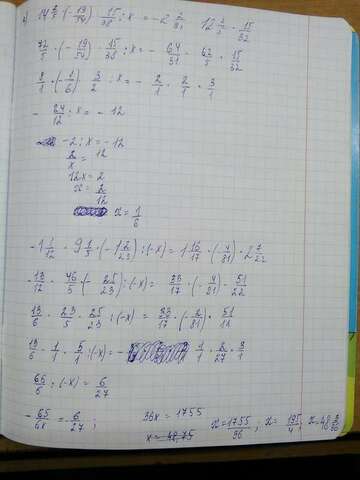 72/5 · (- 19/54) · 15/38 : x = - 64/31 · 62/5 · 15/32
8/1 · (- 1/6) · 3/2 : x = - 2/1 · 2/1 · 3/1
- 24/12 : x = - 12
-2 : x = - 12
2/x = 12
12x = 2
x = 2/12
x = 1/6
-1 1/12 · 9 1/5 · (-1 2/23) : (-x) = 1 16/17 · (- 4/81) · 2 7/22
13/12 · 46/5 · (- 25/23) : (-x) = 33/17 · (- 4/81) · 51/22
13/6 · 23/5 · 25/23 : (-x) = 33/17 · (- 2/81) · 51/11
13/6 · 1/1 · 5/1 : (-x) = - 1/1 · 2/27 · 3/1
65/6 : (-x) = 6/27
- 65/6x = 6/27 ; 36x = 1755 x = 1755/36 ; x = 195/4 ;
x = 48,75